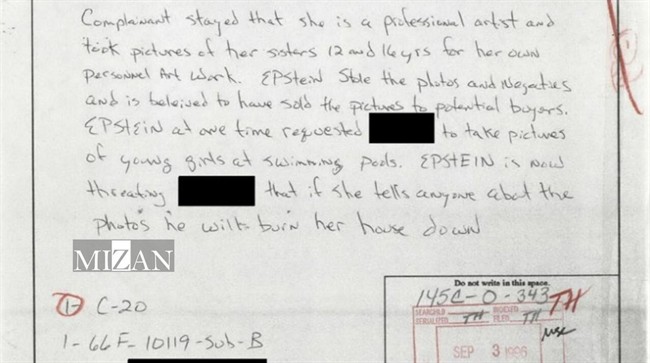 Complainant stayed that she is a professional artist and
took pictures of her sisters 12 and 16 yrs for her own
personnel Art work. EPstein Stole the photos and Negatives
and is beleived to have sold the pictures to potential buyers.
EPSTEIN at one time requested to take pictures
of young girls at swimming pools. EPSTEIN is now
threating that if she tells anyone about the
photos he will burn her house down
MIZAN
Do not write in this space.
145C-0-343 TH
SEARCHED INDEXED
SERIALIZED TH FILED TH
SEP 3 1996
1- C-20
1-66F-10119-Sub-B